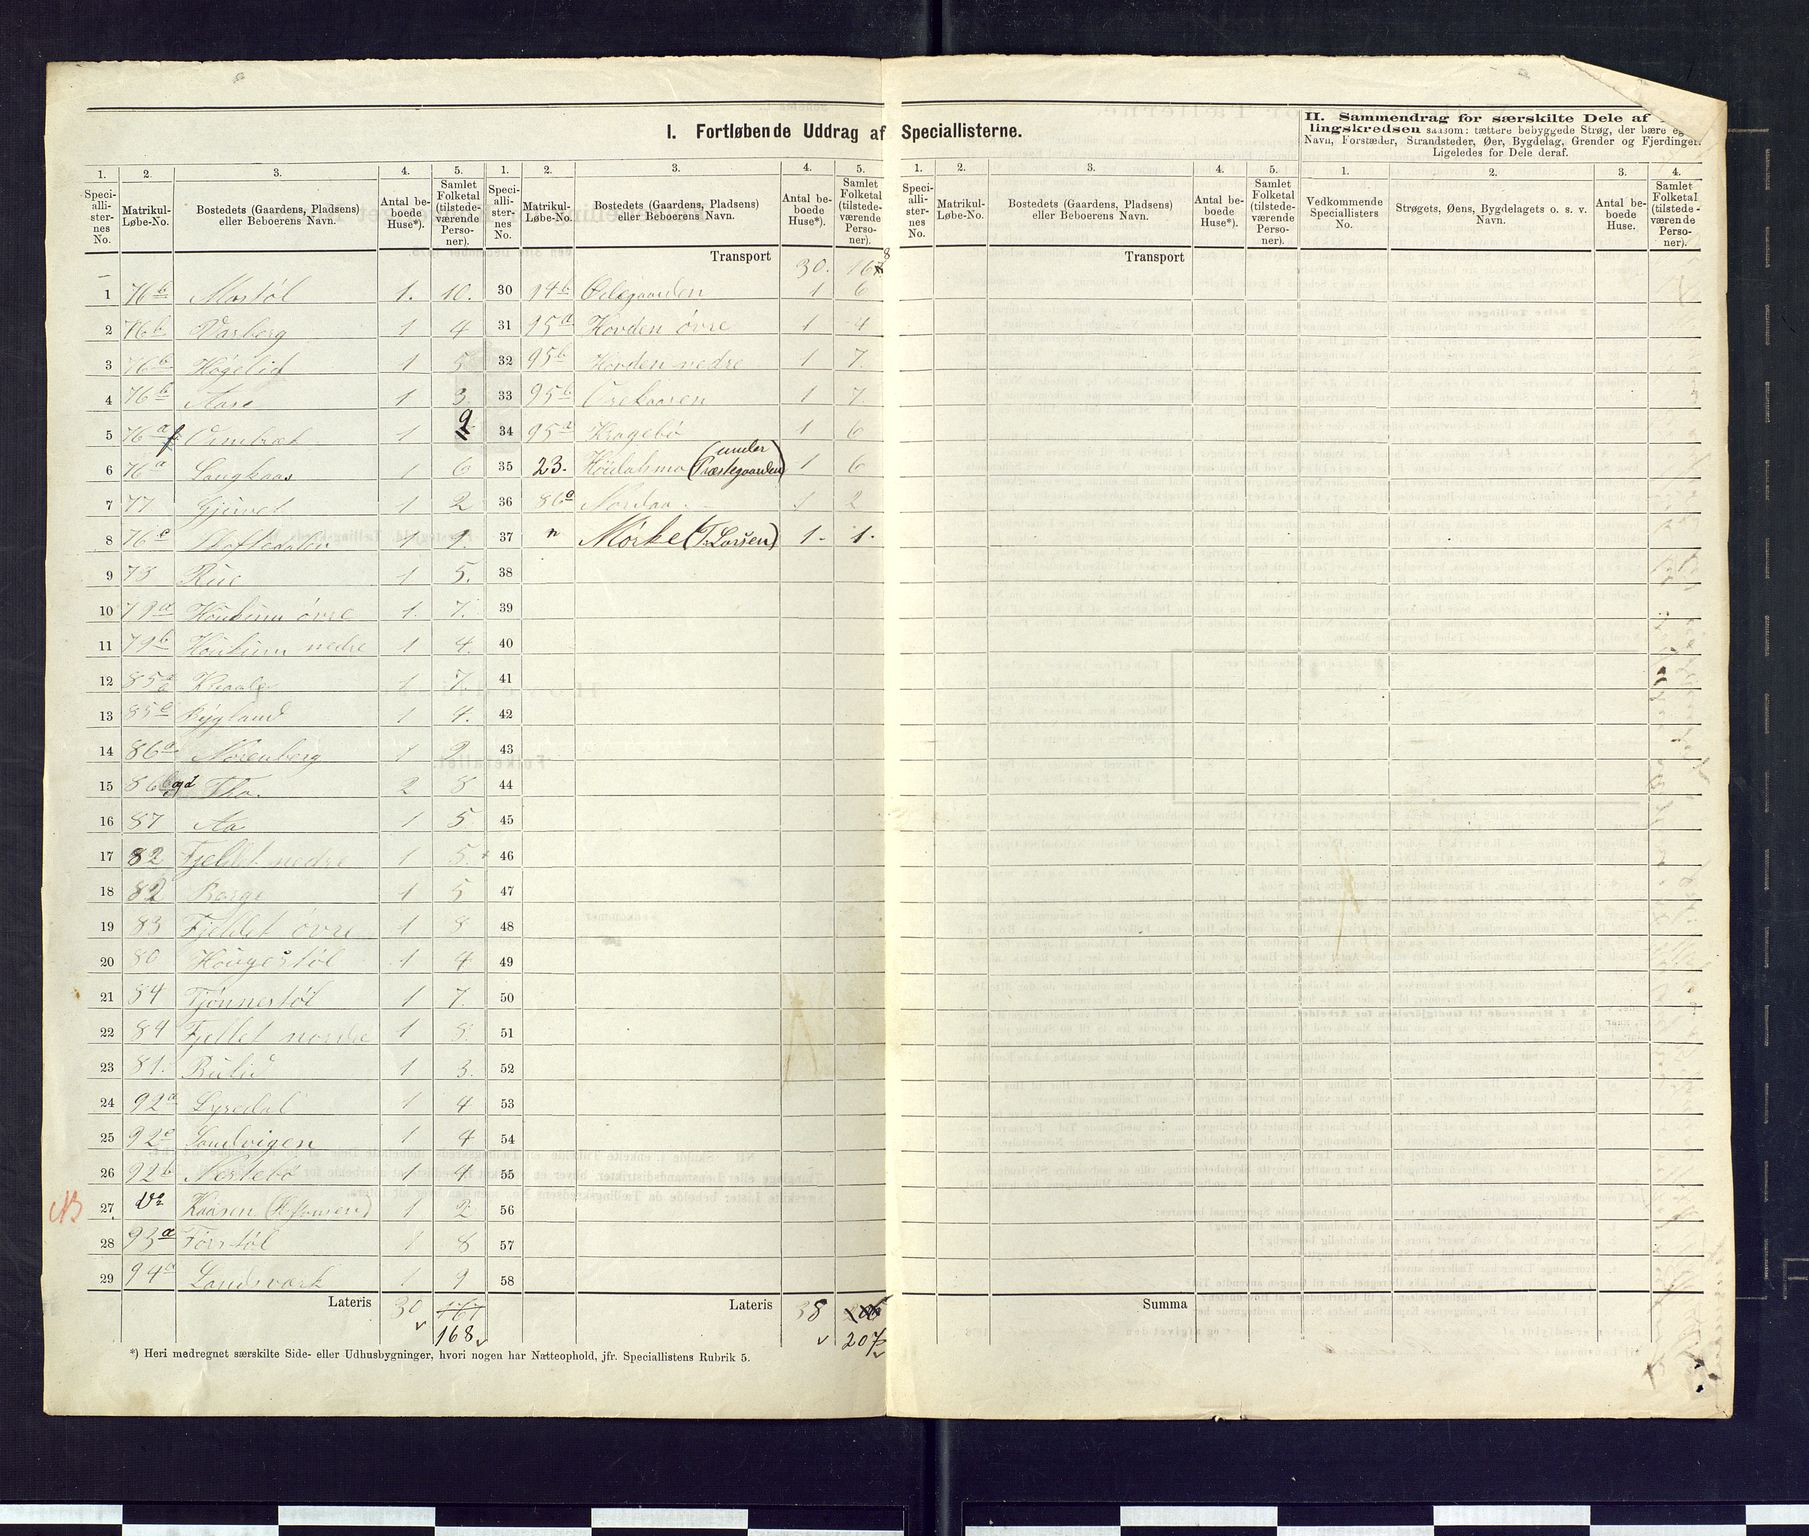 I. Fortløbende Uddrag af Speciallisterne.
II. Sammendrag for særskilte Dele af
lingskredsen saasom: tættere bebyggede Strøg, der bære eg
Navn, Forstæder, Strandsteder, Øer, Bygdelag, Grender og Fjerdinger.
Ligeledes for Dele deraf.
1. 2. 3. 4. 5. 1. 2. 3. 4. 5. 1. 2. 3. 4. 5. 1. 2. 3. 4.
Speciallisternes No. Matrikul-Løbe-No. Bostedets (Gaardens, Pladsens) eller Beboerens Navn. Antal beboede Huse*). Samlet Folketal (tilstedeværende Personer).
Speciallisternes No. Matrikul-Løbe-No. Bostedets (Gaardens, Pladsens) eller Beboerens Navn. Antal beboede Huse*). Samlet Folketal (tilstedeværende Personer).
Speciallisternes No. Matrikul-Løbe-No. Bostedets (Gaardens, Pladsens) eller Beboerens Navn. Antal beboede Huse*). Samlet Folketal (tilstedeværende Personer).
Vedkommende Speciallisters No. Strøgets, Øens, Bygdelagets o. s. v. Navn. Antal beboede Huse. Samlet Folketal (tilstedeværende Personer).
1 76b Mostøl 1. 10.
2 76b Vasberg 1 4
3 76b Høgelid 1 5
4 76b Aase 1 3.
5 76a 1 2
6 76a Langkaas 1 6
7 77 1 2
8 76c 1 9.
9 78 Rue 1 5.
10 79a øvre 1. 7.
11 79b nedre 1 4.
12 85a 1 7.
13 85c Rygland 1 4.
14 86a Norenberg 1 2
15 86b Tho. 2 8
16 87 Aa 1 5
17 82 Fjeldet nedre 1 5.
18 82 Berge 1 5
19 83 Fjeldet øvre 1 8
20 80 Hougestøl 1 4
21 84 Tjønnestøl 1 7.
22 84 Fjellet nordre 1 8.
23 81. Bulid 1 3.
24 92a Lyredal 1 4
25 92c Sandvigen 1 4
26 92b Nestebø 1 4
NB 27 Kaasen 1 2
28 93a Førstøl 1 8
29 94a Landsværk 1 9
Lateris 30 167
168
Transport 30. 168
30 94b Ødegaarden 1 6
31 95a Hovden øvre 1 4
32 95b Hovden nedre 1 7.
33 95b 1 7
34 95a Kragebø 1 6
35 23. (under Præstegaarden) 1 6
36 86a Nordaa. 1 2
37 " Mørke (T. Larsen) 1. 1.
38
39
40
41
42
43
44
45
46
47
48
49
50
51
52
53
54
55
56
57
58
Lateris 38
207
Transport
Summa
*) Heri medregnet særskilte Side- eller Udhusbygninger, hvori nogen har Natteophold, jfr. Speciallistens Rubrik 5.